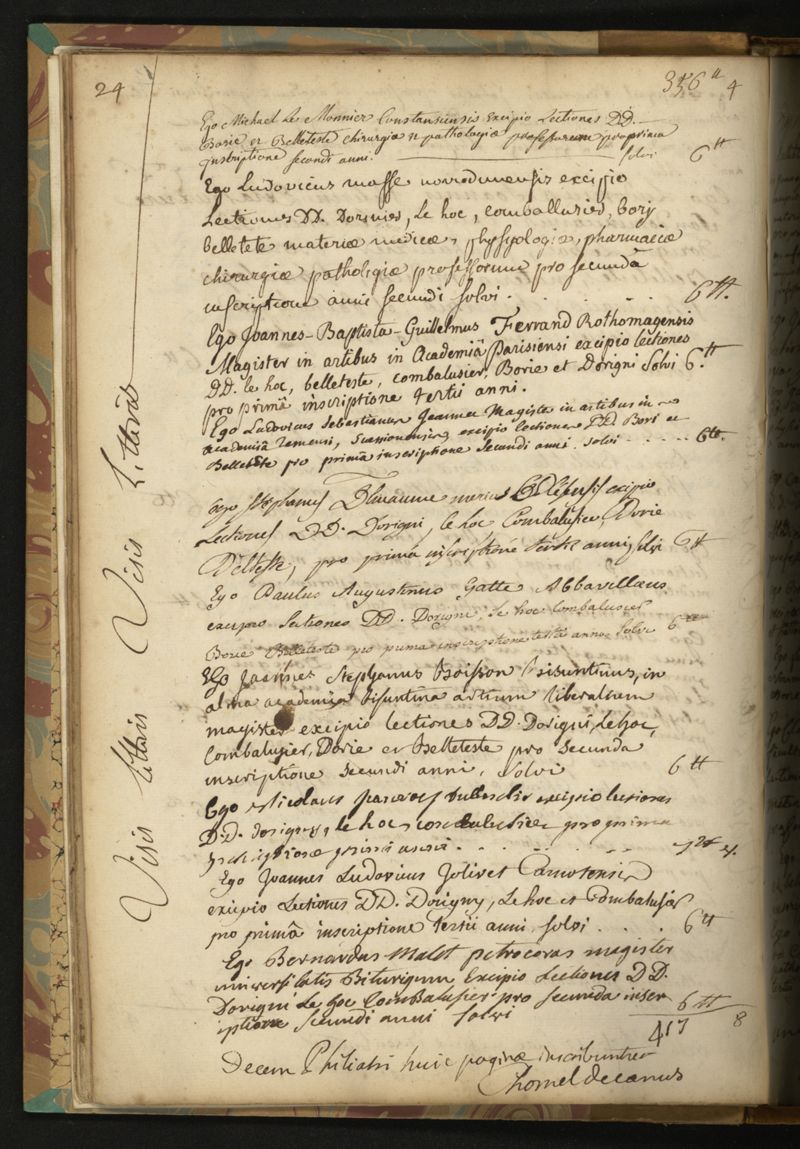 24
356 ₶ 4
Ego Michael Le Monnier Constansiensis Excipio Lectiones DD.
Borie et Belleteste chirurgiæ et pathologiæ professorum pro prima
inscriptione secundi anni. solvi 6 ₶
Ego Ludovicus masse excipio
Lectiones DD. Le hoc, Combalusier, bory
belletete materiæ medicæ, physyologiæ, pharmaciæ
chirurgiæ pathologiæ professorum pro secundâ
inscriptione anni secundi solvi . . . . . . 6 ₶.
Ego Joannes-Baptista-Guillelmus Ferrand Rothomagensis
Magister in artibus in Academiâ Parisiensi excipio lectiones
DD. le hoc, belleteste, combalusier, Borie et Dorigni Solvi 6 ₶
pro primâ inscriptione tertii anni.
Ego Ludovicus Sebastianus Jeannet Magister in artibus in
academiâ remensi, excipio lectiones DD Bori et
Belletête pro primâ inscriptione Secundi anni solvi . . . . . 6 ₶.
Ego Stephanus excipio
Lectiones DD. Dorigni, le hoc Combalusier, Borie
pro prima inscriptione anni, solvi 6 ₶
Ego Paulus Augustinus Gatte Abbavillæus
excipio lectiones DD. Dorigni, Le hoc Combalusier
Borie Belleteste pro prima inscriptione tertii anni Solvi 6 ₶
Ego Joannes Stephanus Boisson bisuntinus, in
alma academia bisuntina artium liberalium
magister excipio lectiones DD. Dorigni, Lehoc,
Combalusier, Borie et Belleteste pro Secunda
inscriptione Secundi anni, Solvi 6 ₶
Ego Nicolaus excipio lectiones
DD. dorigny, le hoc, combalusier pro prima
inscriptione primi anni . . . . . . .
Ego Joannes Ludovicus Jolivet Carnotensis
excipio Lectiones DD. Dorigny, Le hoc et Combalusier
pro primâ inscriptione tertii anni, solvi . . . . 6 ₶
Ego Bernardus Malet petrocoras magister
universitatis Biturigum Excipio Lectiones DD.
Dorigni Le hoc Combalusier pro secunda inscr
iptione Secundi anni Solvi 6 ₶
417 8
Decem Philiatri huic paginæ inscribuntur
Chomel decanus
Visis Littaris Visis Litteris